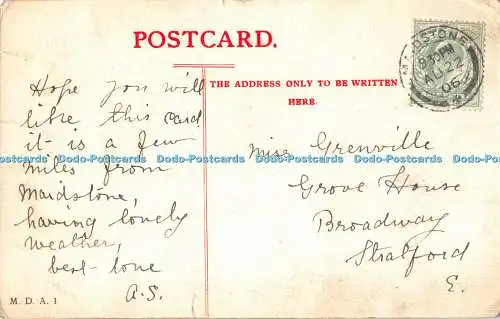 POSTCARD.
THE ADDRESS ONLY TO BE WRITTEN
HERE.
MAIDSTONE
AU 22
06
Hope you will
like this card
it is a few
miles from
Maidstone,
having lovely
weather,
best love
A.S.
Miss Grenville
Grove House
Broadway
Stratford
E.
M. D. A. 1
Dodo-Postcards Dodo-Postcards Dodo-Postcards Dodo-Postcards Dodo-Postcards Dodo-Postcards